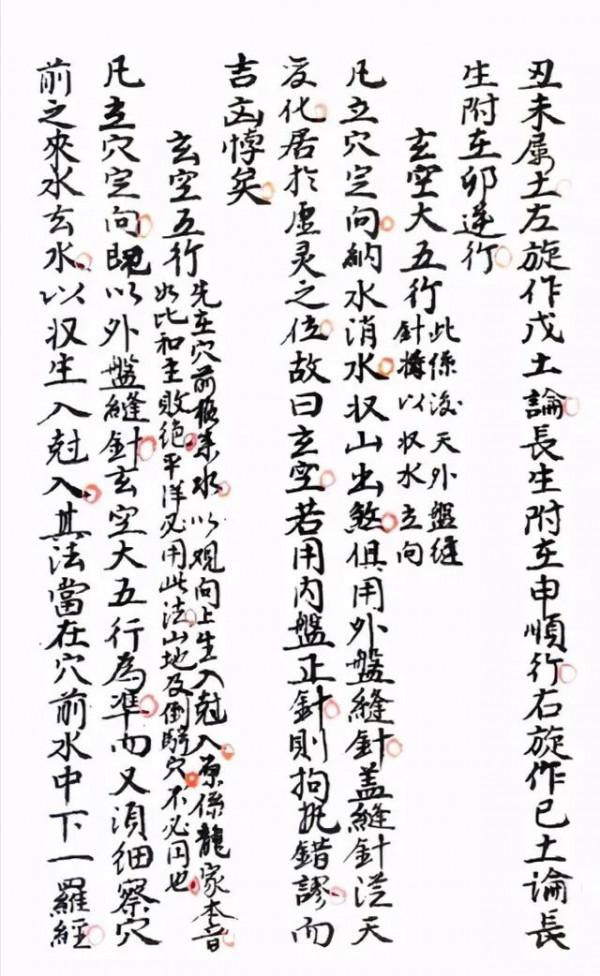 丑未属土左旋作戊土論長生附在申順行右旋作已土论長
生附在卯逆行
玄空大五行
此係後天外盤縫
針撥以収水立向
凡立穴定向納水消水収山出煞俱用外盤縫針盖縫針従天
変化居於虚灵之位故曰玄空若用内盤正針則拘执錯謬而
吉凶悖矣
玄空五行
先在穴前撥来水以观向上生入尅入原係龍家本音
如比和主敗绝平洋必用此法山地及倒騎穴不必用也
凡立穴定向既以外盤縫針玄空大五行為準而又須细察穴
前之來水玄水以収生入尅入其法當在穴前水中下一羅經